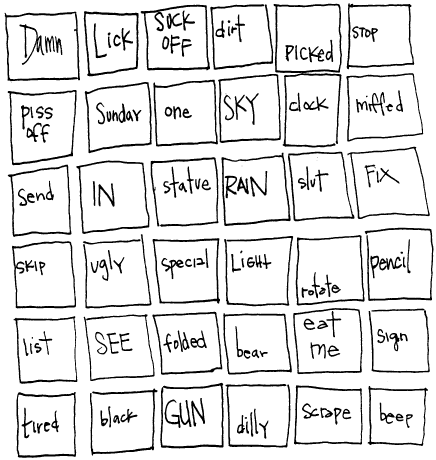 Damn Lick SUCK OFF dirt PICKED STOP
PISS OFF Sunday one SKY clock miffed
Send IN statue RAIN slut FIX
SKIP ugly special LIGHT rotate pencil
list SEE folded bear eat me Sign
tired black GUN dilly Scrape beep